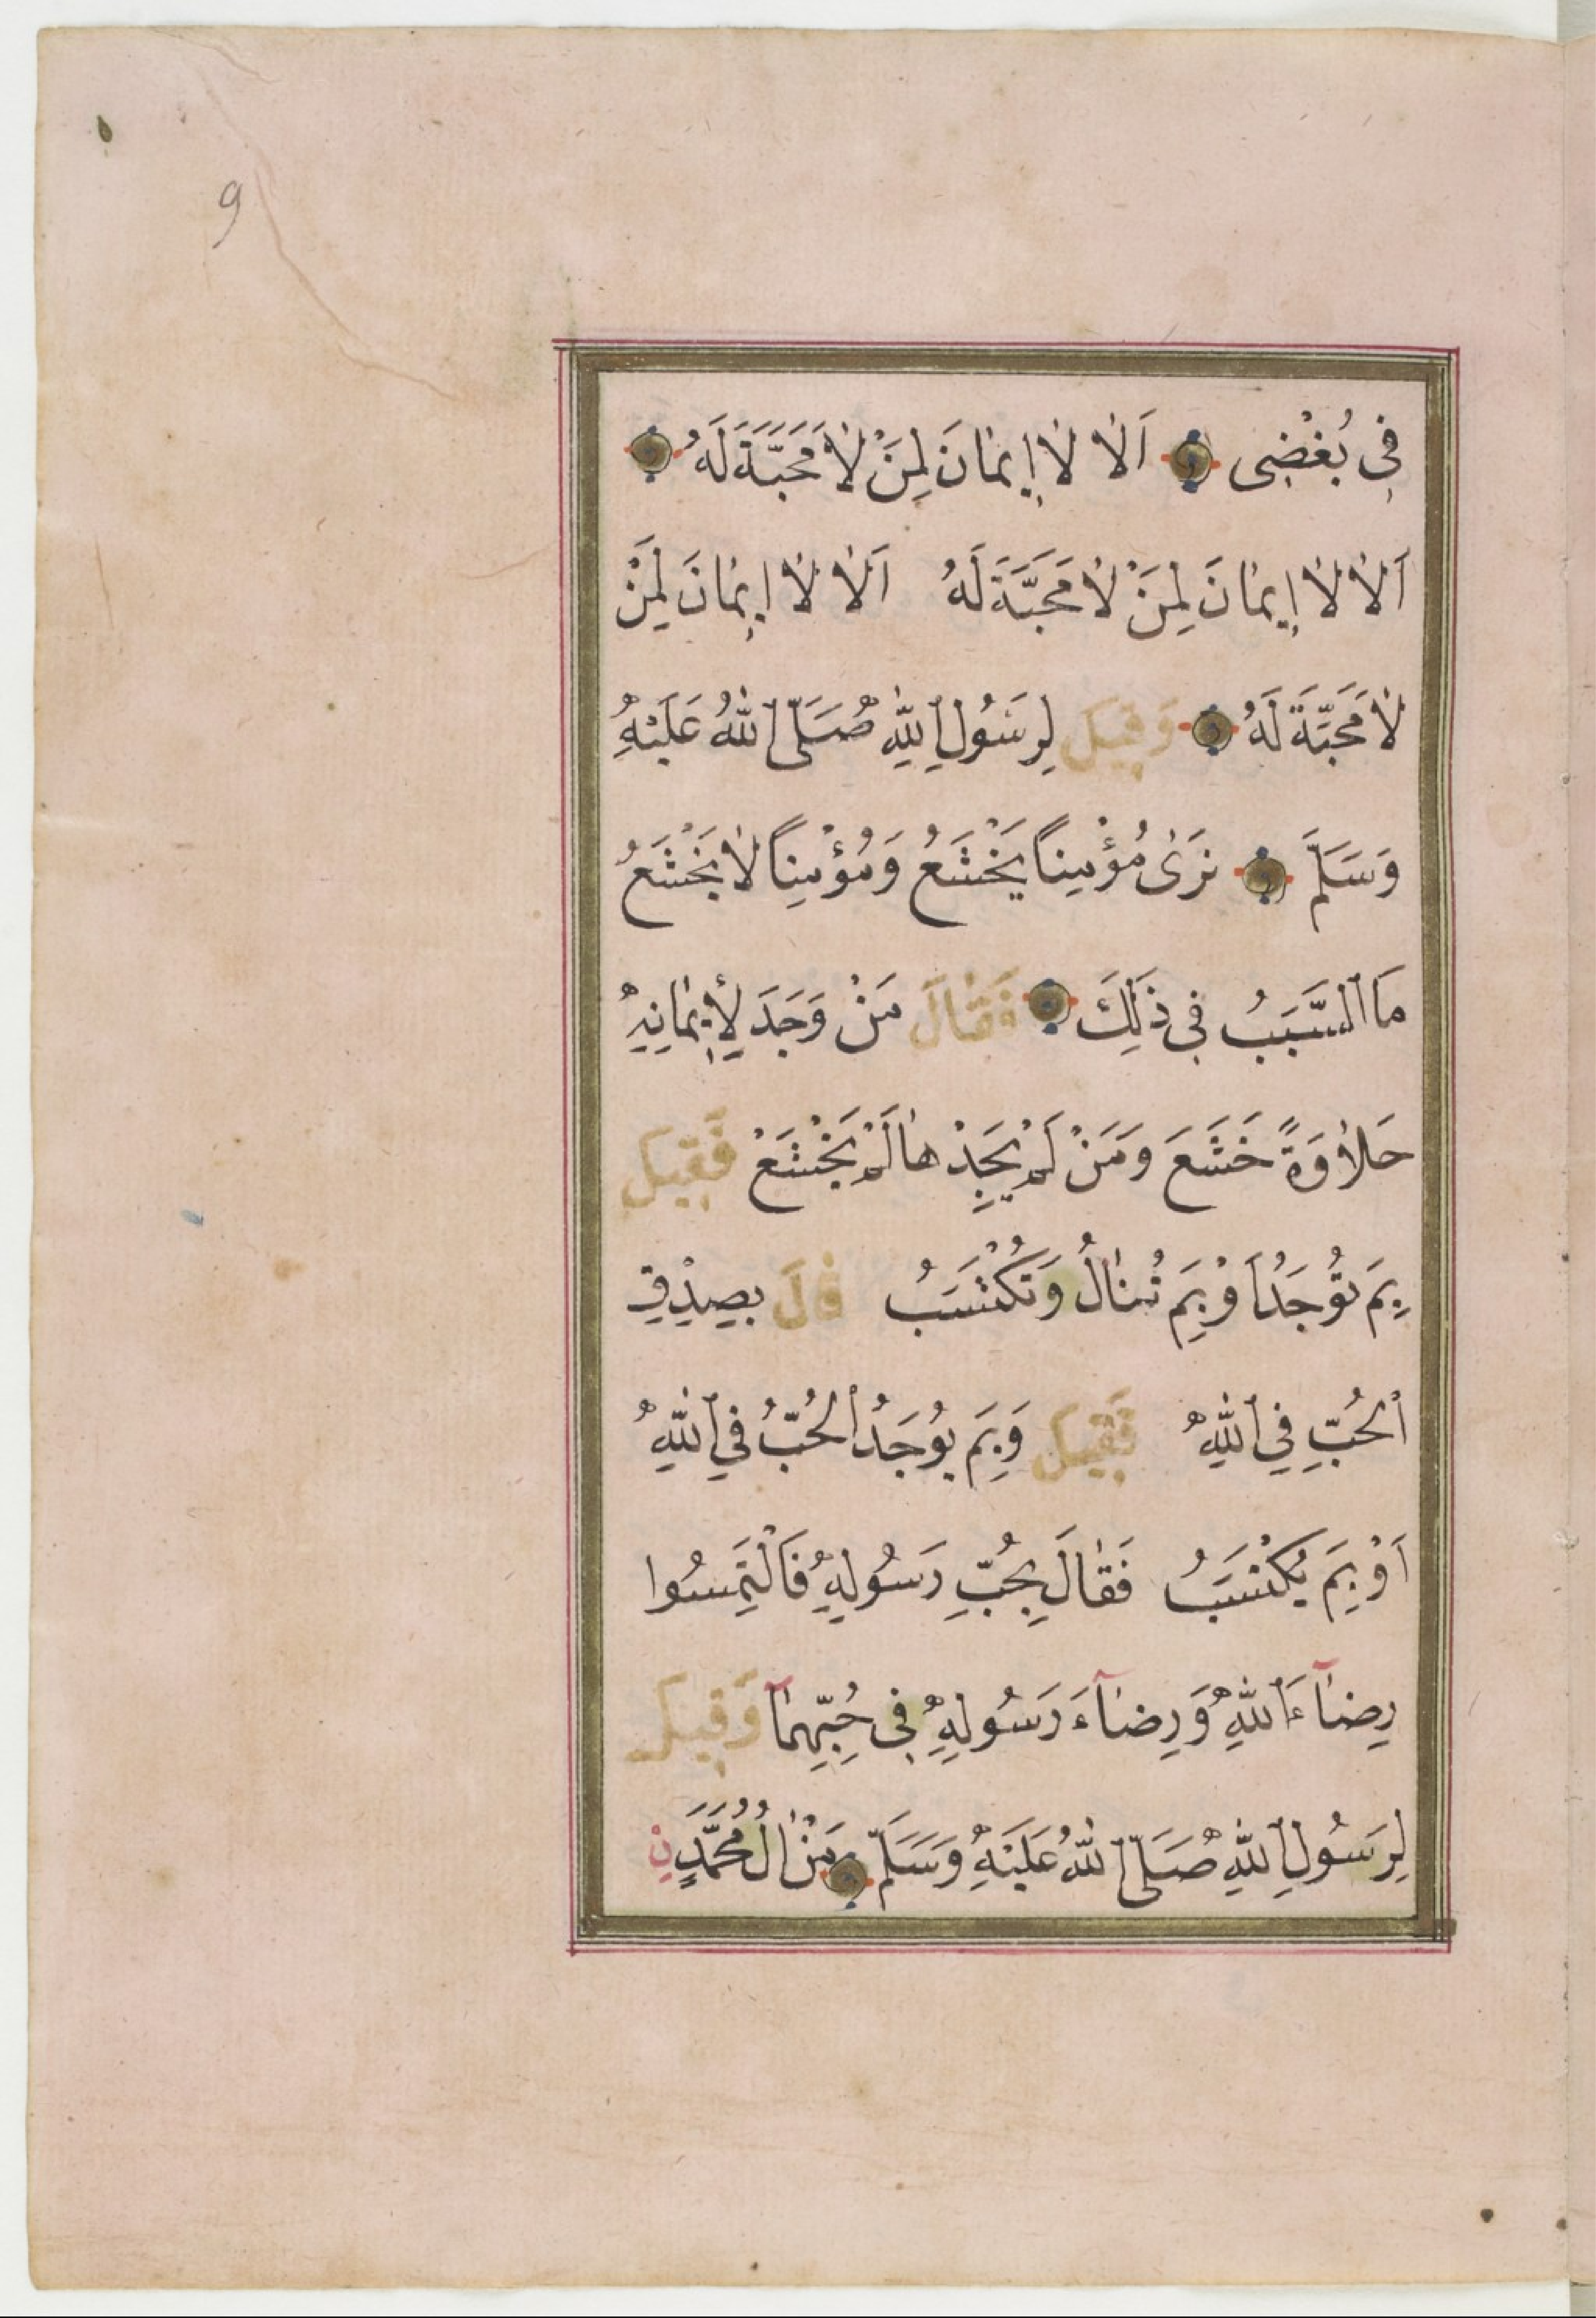 9
فِى بُغْضِى اَلَا لَا اِيمَانَ لِمَنْ لَا مَحَبَّةَ لَهُ
اَلَا لَا اِيمَانَ لِمَنْ لَا مَحَبَّةَ لَهُ اَلَا لَا اِيمَانَ لِمَنْ
لَا مَحَبَّةَ لَهُ وَقِيلَ لِرَسُولِ اللّٰهِ صَلَّى اللّٰهُ عَلَيْهِ
وَسَلَّمَ نَرَى مُؤْمِنًا يَخْشَعُ وَمُؤْمِنًا لَا يَخْشَعُ
مَا السَّبَبُ فِى ذَلِكَ فَقَالَ مَنْ وَجَدَ لِاِيمَانِهِ
حَلَاوَةً خَشَعَ وَمَنْ لَمْ يَجِدْهَا لَمْ يَخْشَعْ فَقِيلَ
بِمَ تُوجَدُ اَوْ بِمَ تُنَالُ وَتُكْتَسَبُ قَالَ بِصِدْقِ
الْحُبِّ فِى اللّٰهِ فَقِيلَ وَبِمَ يُوجَدُ الْحُبُّ فِى اللّٰهِ
اَوْ بِمَ يُكْتَسَبُ فَقَالَ بِحُبِّ رَسُولِهِ فَالْتَمِسُوا
رِضَآءَ اللّٰهِ وَرِضَآءَ رَسُولِهِ فِى حُبِّهِمَآ وَقِيلَ
لِرَسُولِ اللّٰهِ صَلَّى اللّٰهُ عَلَيْهِ وَسَلَّمَ مَنْ اٰلُ مُحَمَّدٍ نِ